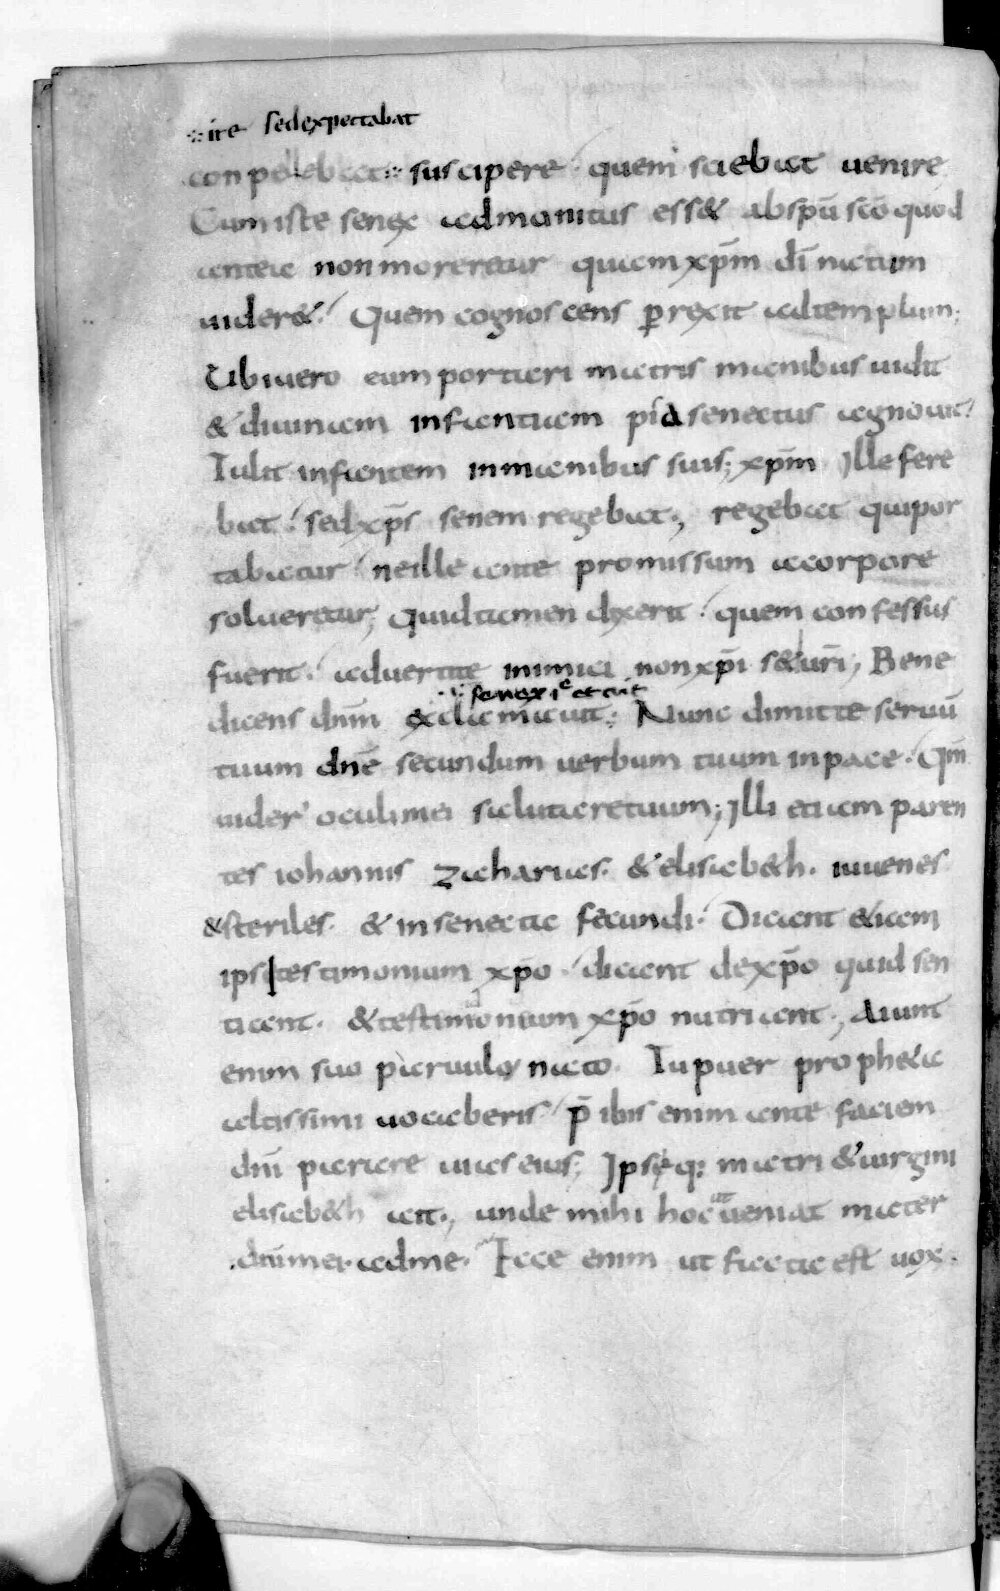 ire sed expectabat
conpellebat suscipere quem sciebat uenire
Cum iste senex admonitus ess& abspū scō quod
antea non moreretur quam xp̄m dn̄i natum
uider&. Quem cognoscens p̄rexit adtemplum;
Ubi uero eum portari matris manibus uidit
& diuinam infantiam pia senectus agnouit.
Tulit infantem inmanibus suis; xp̄m ille fere
bat. sedxp̄s senem regebat; regebat quipor
tabatur neille ante promissum acorpore
solueretur; Quid tamen dixerit. quem confessus
fuerit. aduertite inimici non xp̄i s& ur̄i; Bene
senex ille et ait
dicens dn̄m exclamauit; Nunc dimitte seruū
tuum dn̄e secundum uerbum tuum inpace. Qm̄
uider oculi mei salutare tuum; Illi etiam paren
tes iohannis zacharias. & elisab&h. iuuenes
& steriles. & in senecta fecundi. Dicant &iam
ipsi testimonium xp̄o. dicant dexp̄o quid sen
tiant. & testimonium xp̄o nutriant; Aiunt
enim suo paruulo nato. Tu puer proph&a
altissimi uocaberis p̄ ibis enim ante faciem
dn̄i parare uias eius; Ipsęq: matri & uirgini
elisab&h ait; unde mihi hoc ut ueniat mater
dn̄i mei adme. Ecce enim ut facta est uox.